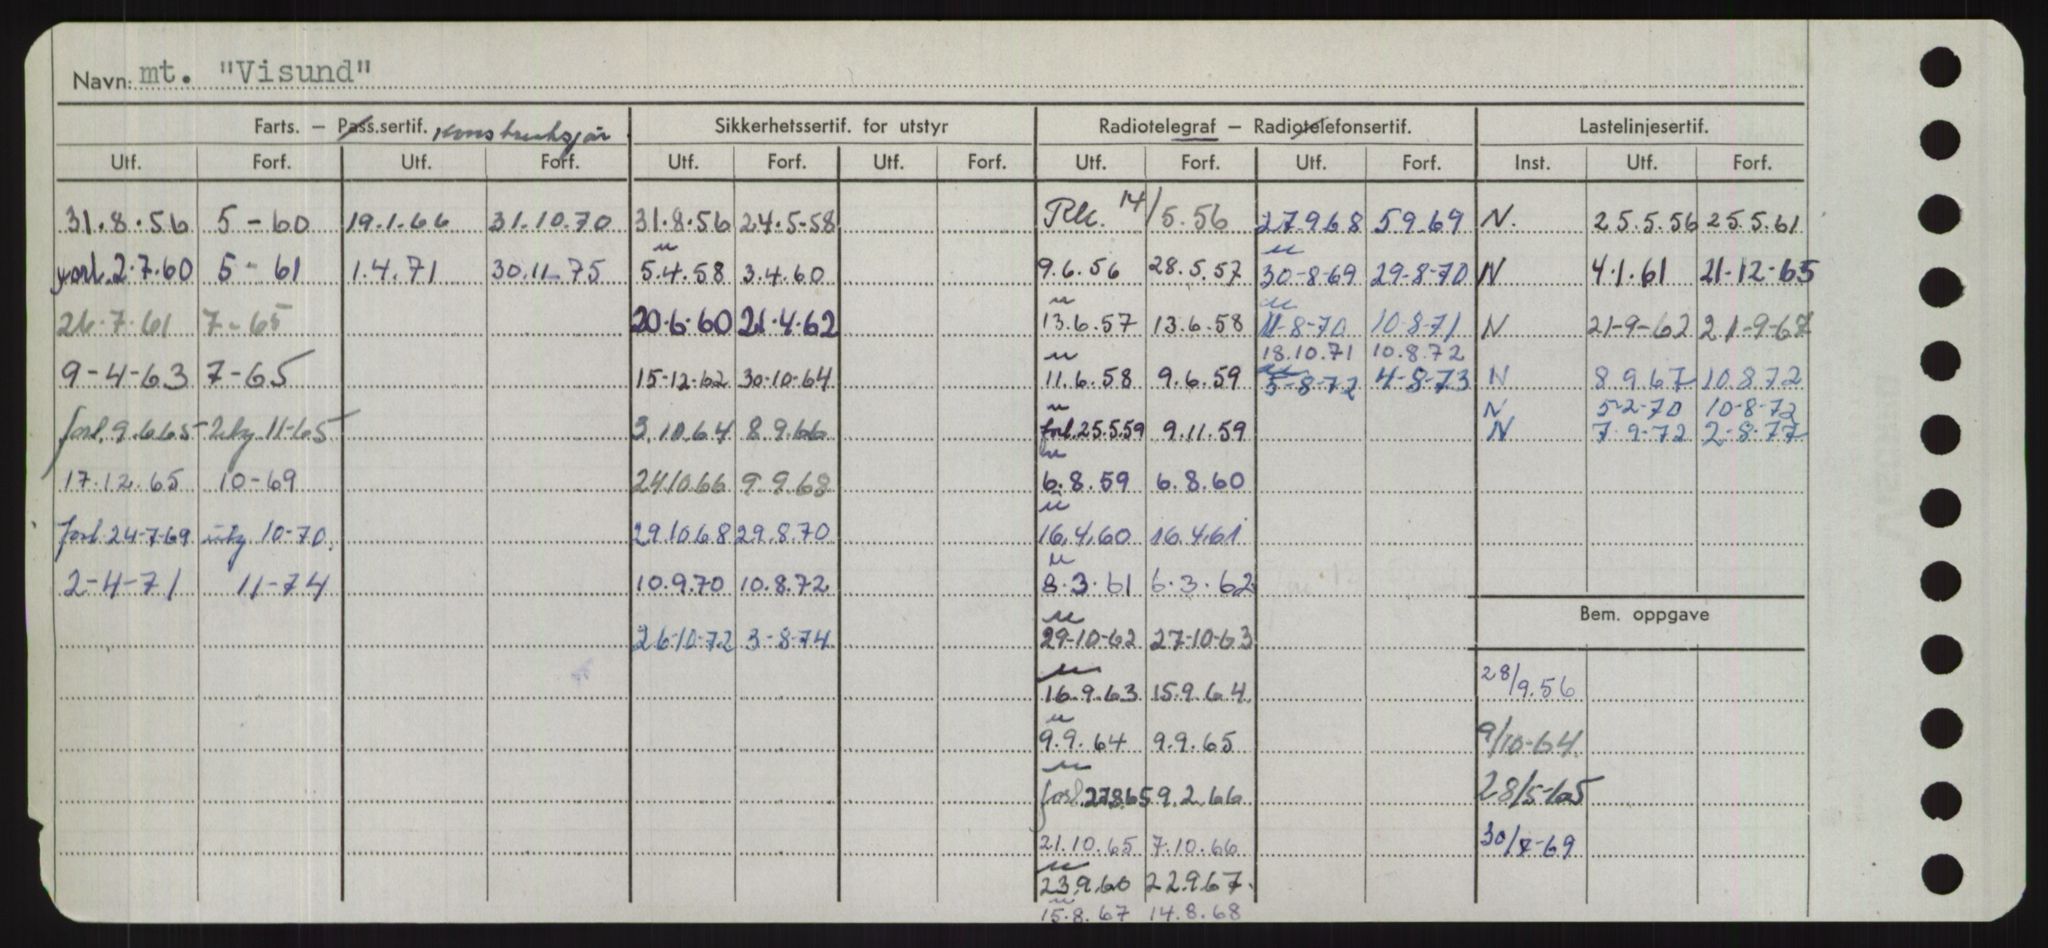 Navn: mt. "Visund"
Farts. – Pass.sertif. Sikkerhetssertif. for utstyr Radiotelegraf – Radiotelefonsertif. Lastelinjesertif.
Utf. Forf. Utf. Forf. Utf. Forf. Utf. Forf. Utf. Forf. Utf. Forf. Inst. Utf. Forf.
31.8.56 5-60 19.1.66 31.10.70 31.8.56 24.5-58 14/5.56 27.9.68 5.9.69 N. 25.5.56 25.5.61
forl. 2.7.60 5-61 1.4.71 30.11.75 5.4.58 3.4.60 9.6.56 28.5.57 30-8-69 29-8-70 N 4.1.61 21-12-65
26-7-61 7-65 20-6-60 21-4-62 13.6.57 13.6.58 11-8-70 10-8-71 N 21-9-62 21-9-67
18.10.71 10.8.72
9-4-63 7-65 15-12-62 30-10-64 11.6.58 9.6.59 5-8-72 4-8-73 N 8967 10872
N 5-2-70 10-8-72
forl. 9.6.65 utg 11-65 3.10.64 8.9.66 forl. 25.5.59 9.11.59 N 7-9-72 2-8-77
17.12.65 10-69 24.10.66 9.9.68 6.8.59 6.8.60
forl. 24-7-69 utg 10-70. 29.10.68 29.8.70 16.4.60 16.4.61
2-4-71 11-74 10.9.70 10.8.72 8.3.61 6.3.62
Bem. oppgave
26-10-72 3-8-74 29-10-62 27-10-63
16.9.63 15.9.64 28/9.56
9.9.64 9.9.65 9/10-64
forl. 27865 9.2.66 28/5-65
21.10.65 7.10.66 30/7-69
23.9.60 22.9.67.
15.8.67 14.8.68